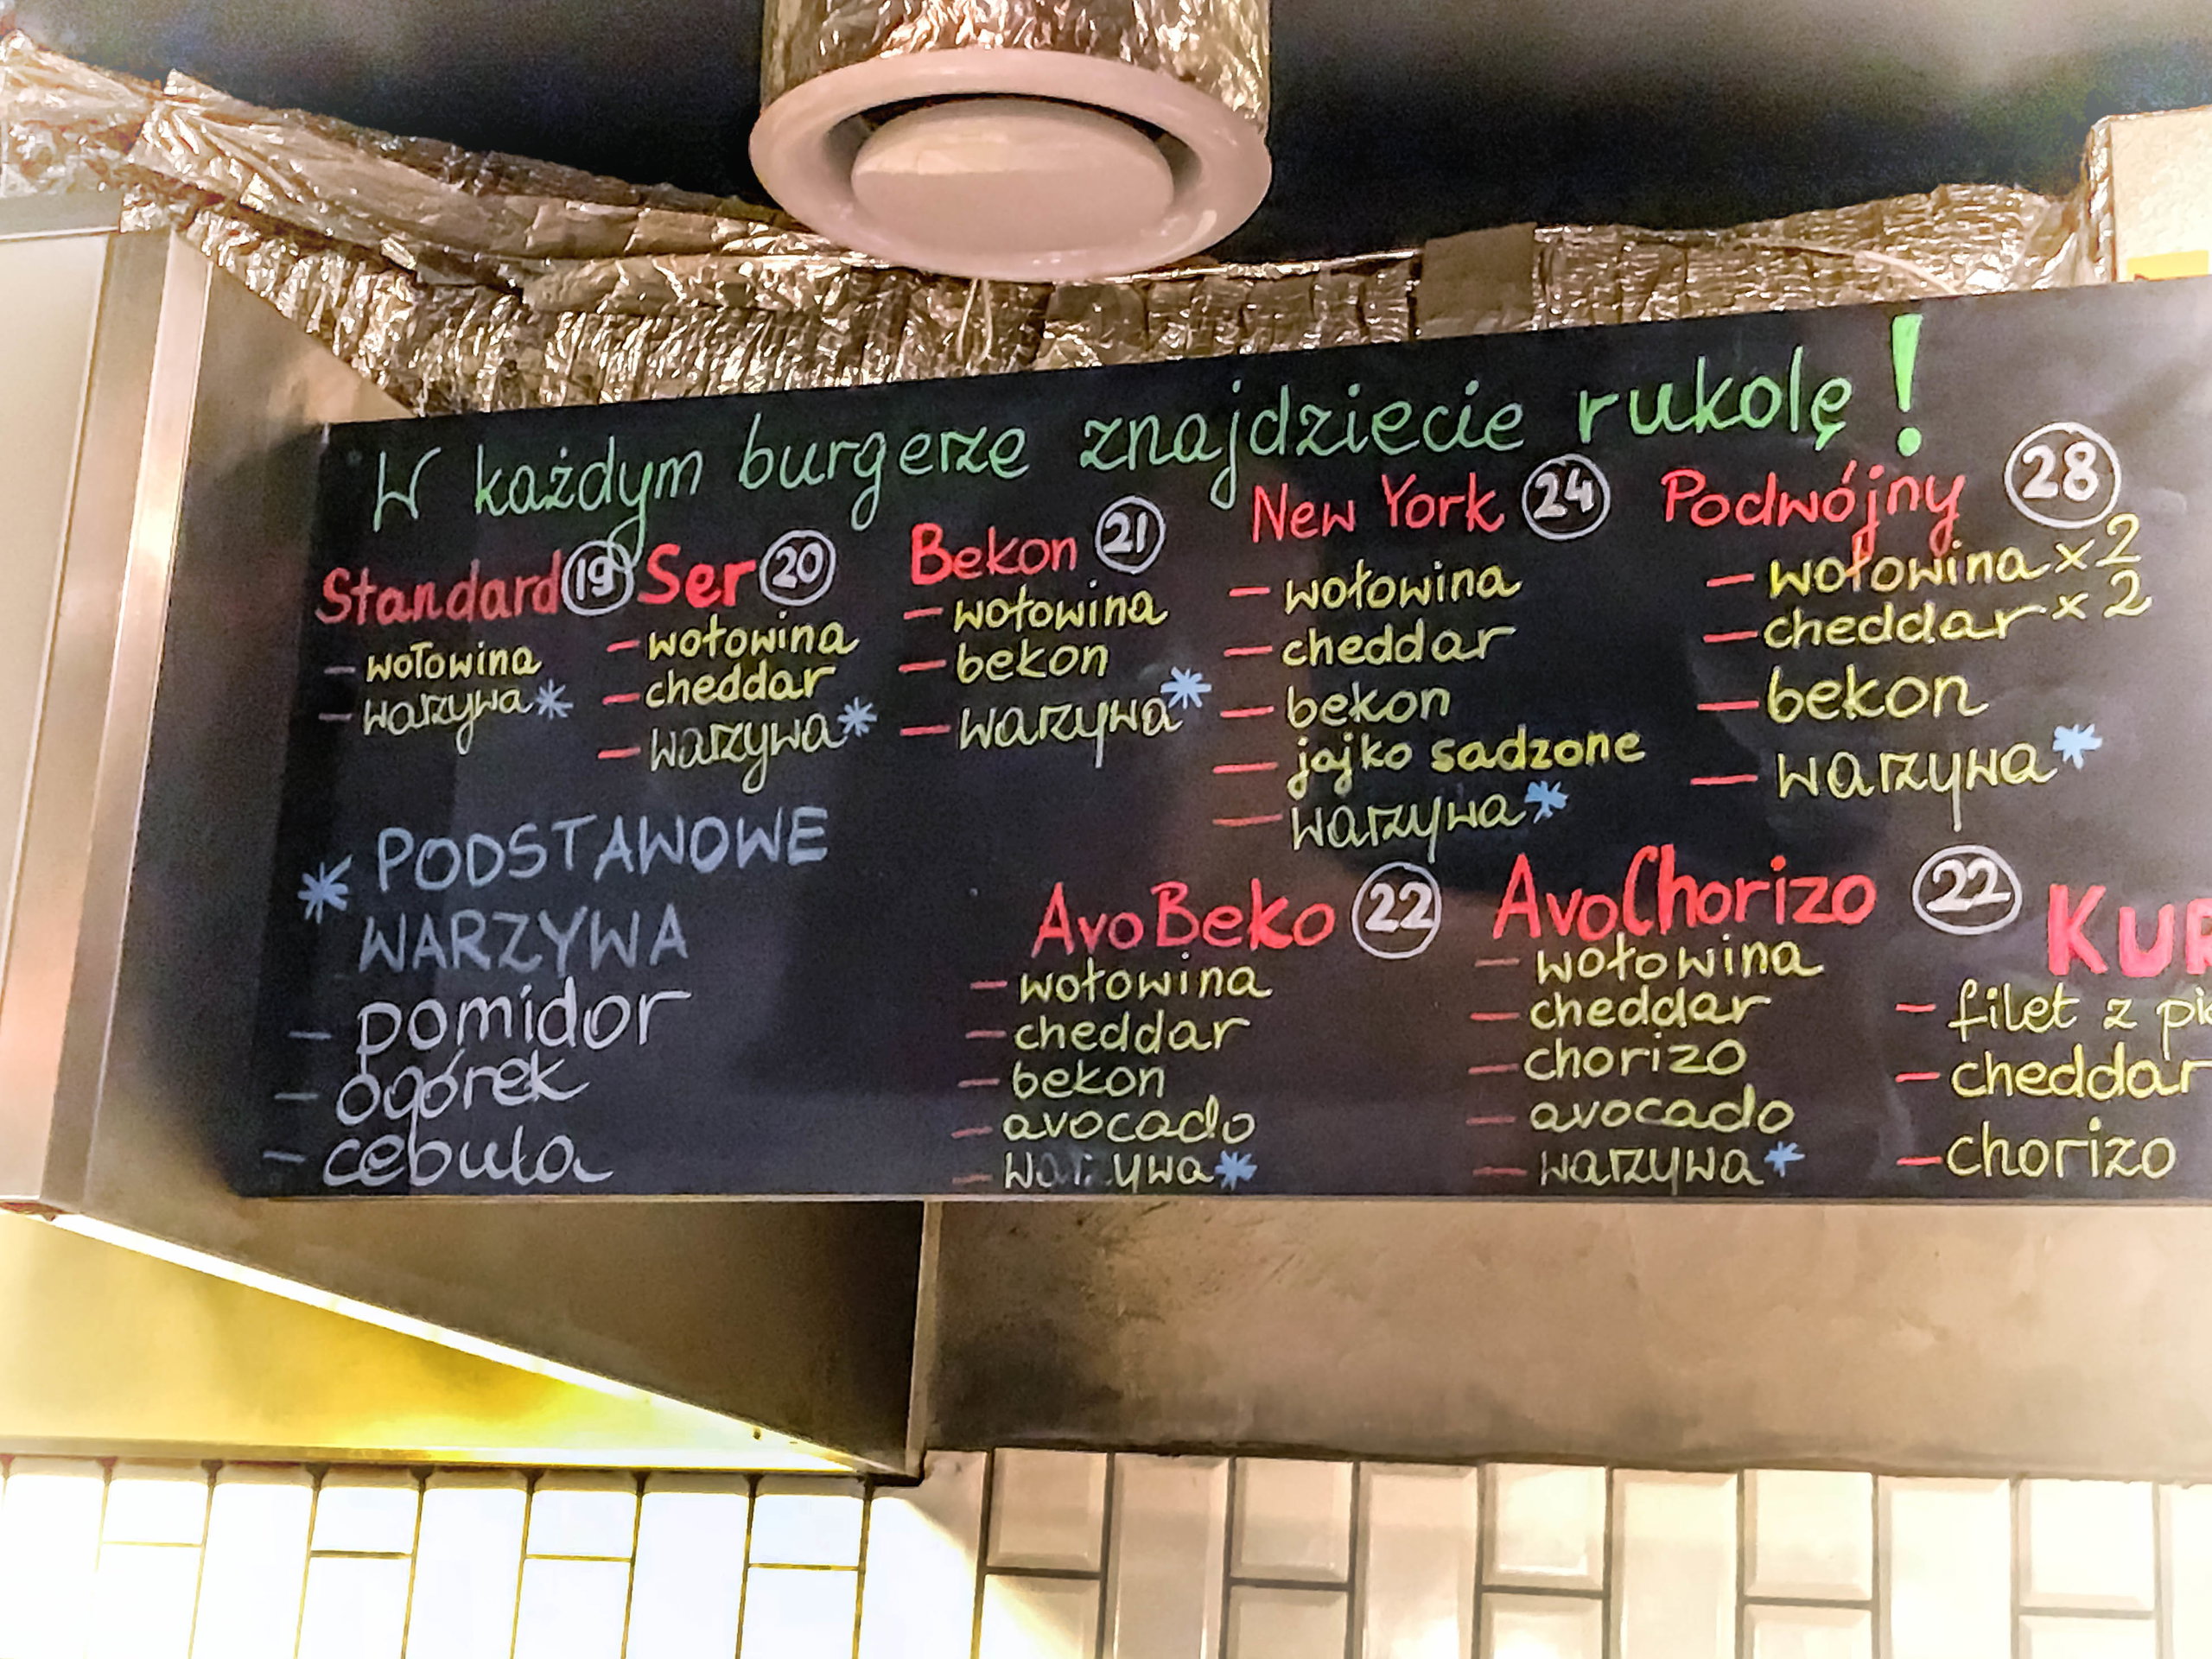 W każdym burgerze znajdziecie rukolę!
Standard 19
– wołowina
– warzywa*
Ser 20
– wołowina
– cheddar
– warzywa*
Bekon 21
– wołowina
– bekon
– warzywa*
New York 24
– wołowina
– cheddar
– bekon
– jajko sadzone
– warzywa*
Podwójny 28
– wołowina x 2
– cheddar x 2
– bekon
– warzywa*
* PODSTAWOWE
WARZYWA
– pomidor
– ogórek
– cebula
AvoBeko 22
– wołowina
– cheddar
– bekon
– avocado
– warzywa*
AvoChorizo 22
– wołowina
– cheddar
– chorizo
– avocado
– warzywa*
– filet z
– cheddar
– chorizo